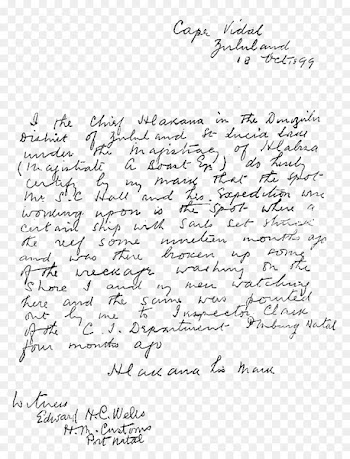 Cape Vidal
Zululand
18 Oct 1899
I the Chief Hlakana in the
District of Zululand St Lucia
under the Magistracy of Hlabisa
(Magistrate A Boast Esq) do hereby
certify by my mark that the spot
Mr S.C Hall and his Expedition were
working upon is the spot where a
certain ship with sails set struck
the reef some nineteen months ago
and was there broken up some
of the wreckage washing on the
shore I and my men watching
here and the same was pointed
out by me to Inspector Clark
of the C. I. Department Natal
four months ago
Hlakana his mark
Witness
Edward H.C. Wells
H.M. Customs
Port Natal